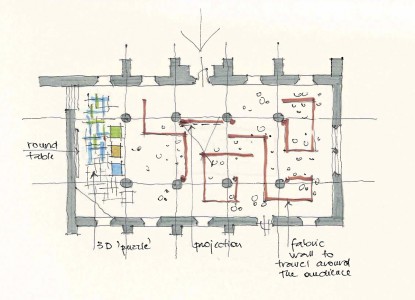 round
table
3D 'puzzle'
projection
fabric
wall to
travel around
the audience